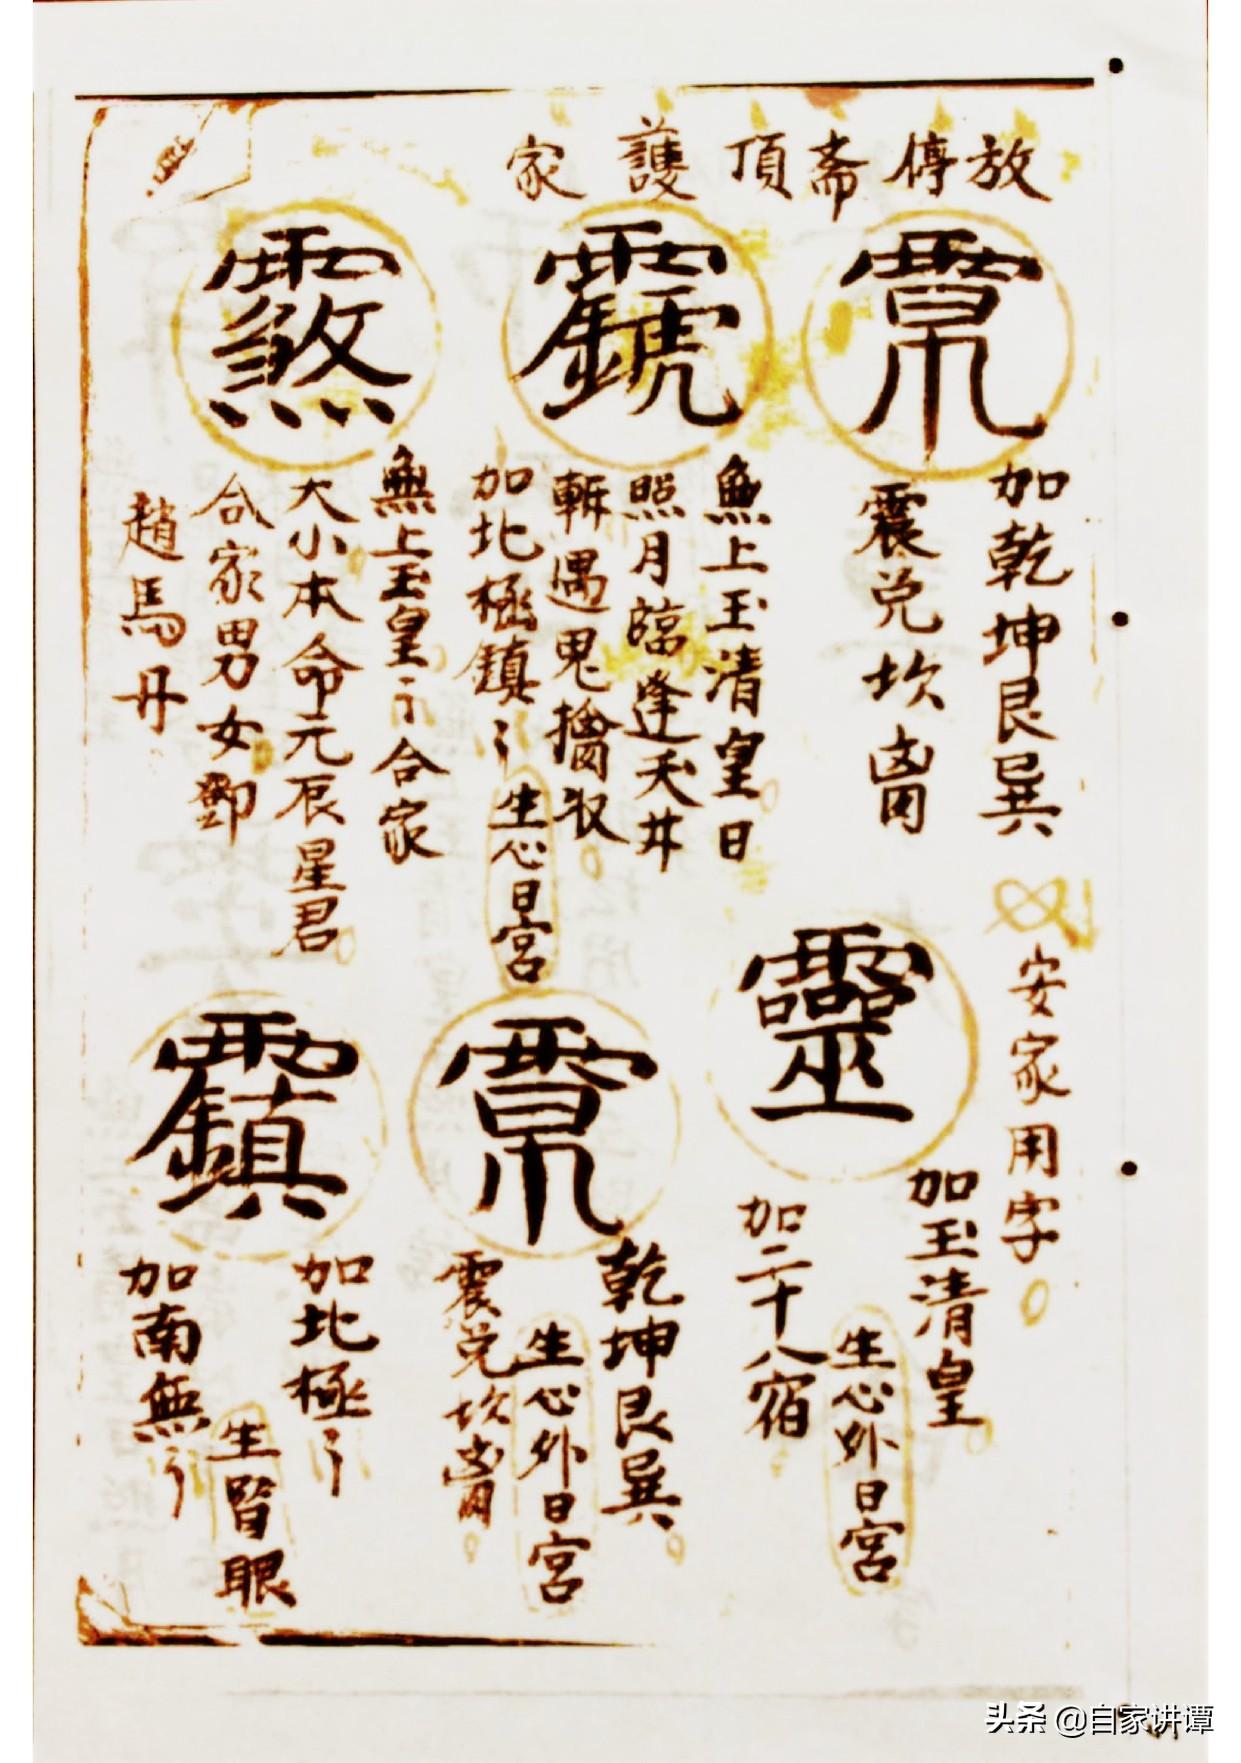 放停斋頂護家
加乾坤艮巽
震兑坎离
無上玉清皇日
照月臨逢天井
斬遇鬼擒收
加北極鎮
生心日宮
無上玉皇合家
大小本命元辰星君
合家男女鄧
趙馬
安家用字
靈
加玉清皇
生心外日宮
加二十八宿
乾坤艮巽
生心外日宮
震兑坎离
加北極
生智眼
加南無
头条 @自家讲谭